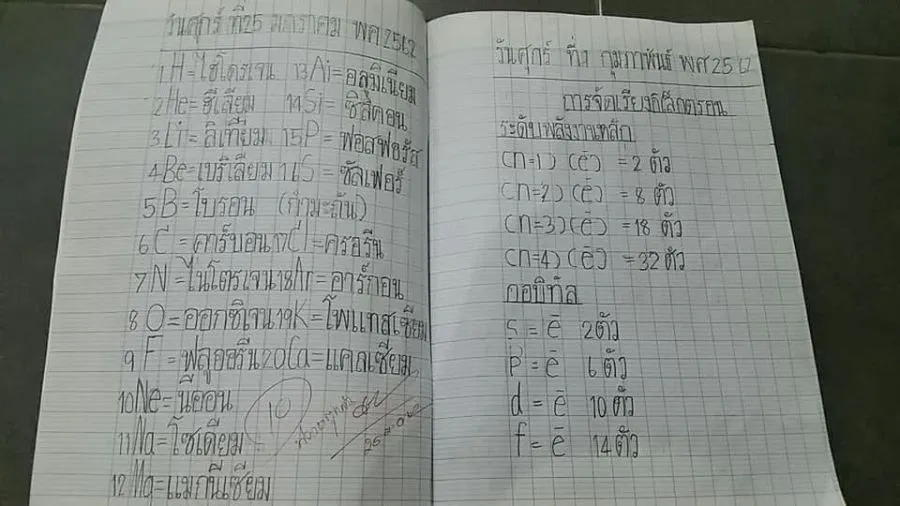 วันศุกร์ ที่25 มกราคม พศ 2562
1 H = ไฮโดรเจน 13 Ai = อลูมิเนียม
2 He = ฮีเลียม 14 Si = ซิลิคอน
3 Li = ลิเทียม 15 P = ฟอสฟอรัส
4 Be = เบริเลียม 16 S = ซัลเฟอร์
5 B = โบรอน (กำมะถัน)
6 C = คาร์บอน 17 Cl = ครอรีน
7 N = ไนโตรเจน 18 Ar = อาร์กอน
8 O = ออกซิเจน 19 K = โพแทสเซียม
9 F = ฟลูออรีน 20 Ca = แคลเซียม
10 Ne = นีออน
10
11 Na = โซเดียม
12 Mg = แมกนีเซียม
วันศุกร์ ที่1 กุมภาพันธ์ พศ 2562
การจัดเรียงอิเล็กตรอน
ระดับพลังงานหลัก
(n=1) (ē) = 2 ตัว
(n=2) (ē) = 8 ตัว
(n=3) (ē) = 18 ตัว
(n=4) (ē) = 32 ตัว
ออบิทัล
s = ē 2 ตัว
p = ē 6 ตัว
d = ē 10 ตัว
f = ē 14 ตัว